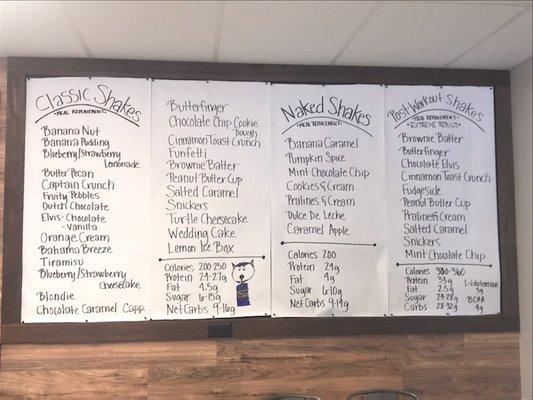 Classic Shakes
-MEAL REPLACEMENT-
Banana Nut
Banana Pudding
Blueberry/Strawberry
Lemonade
Butter Pecan
Captain Crunch
Fruity Pebbles
Dutch Chocolate
Elvis-Chocolate
-Vanilla
Orange Cream
Bahama Breeze
Tiramisu
Blueberry/Strawberry
cheesecake
Blondie
Chocolate Caramel Capp.
Butterfinger
Chocolate Chip Cookie
Dough
Cinnamon Toast Crunch
Funfetti
Brownie Batter
Peanut Butter Cup
Salted Caramel
Snickers
Turtle Cheesecake
Wedding Cake
Lemon Ice Box
Calories 200-250
Protein 24-27g
Fat 4.5g
Sugar 6-15g
Net Carbs 9-16g
Naked Shakes
-MEAL REPLACEMENT-
Banana Caramel
Pumpkin Spice
Mint Chocolate Chip
Cookies & Cream
Pralines & Cream
Dulce De Leche
Caramel Apple
Calories 200
Protein 24g
Fat 4g
Sugar 6-10g
Net Carbs 9-14g
Post Workout Shakes
-MEAL REPLACEMENT-
-EXTREME REBUILD-
Brownie Batter
Butterfinger
Chocolate Elvis
Cinnamon Toast Crunch
Fudgesicle
Peanut Butter Cup
Pralines & Cream
Salted Caramel
Snickers
Mint Chocolate Chip
Calories 300-360
Protein 33g
Fat 2.5g
Sugar 24-28g
Carbs 28-32g
L-Glutamine
3g
BCAA
4g